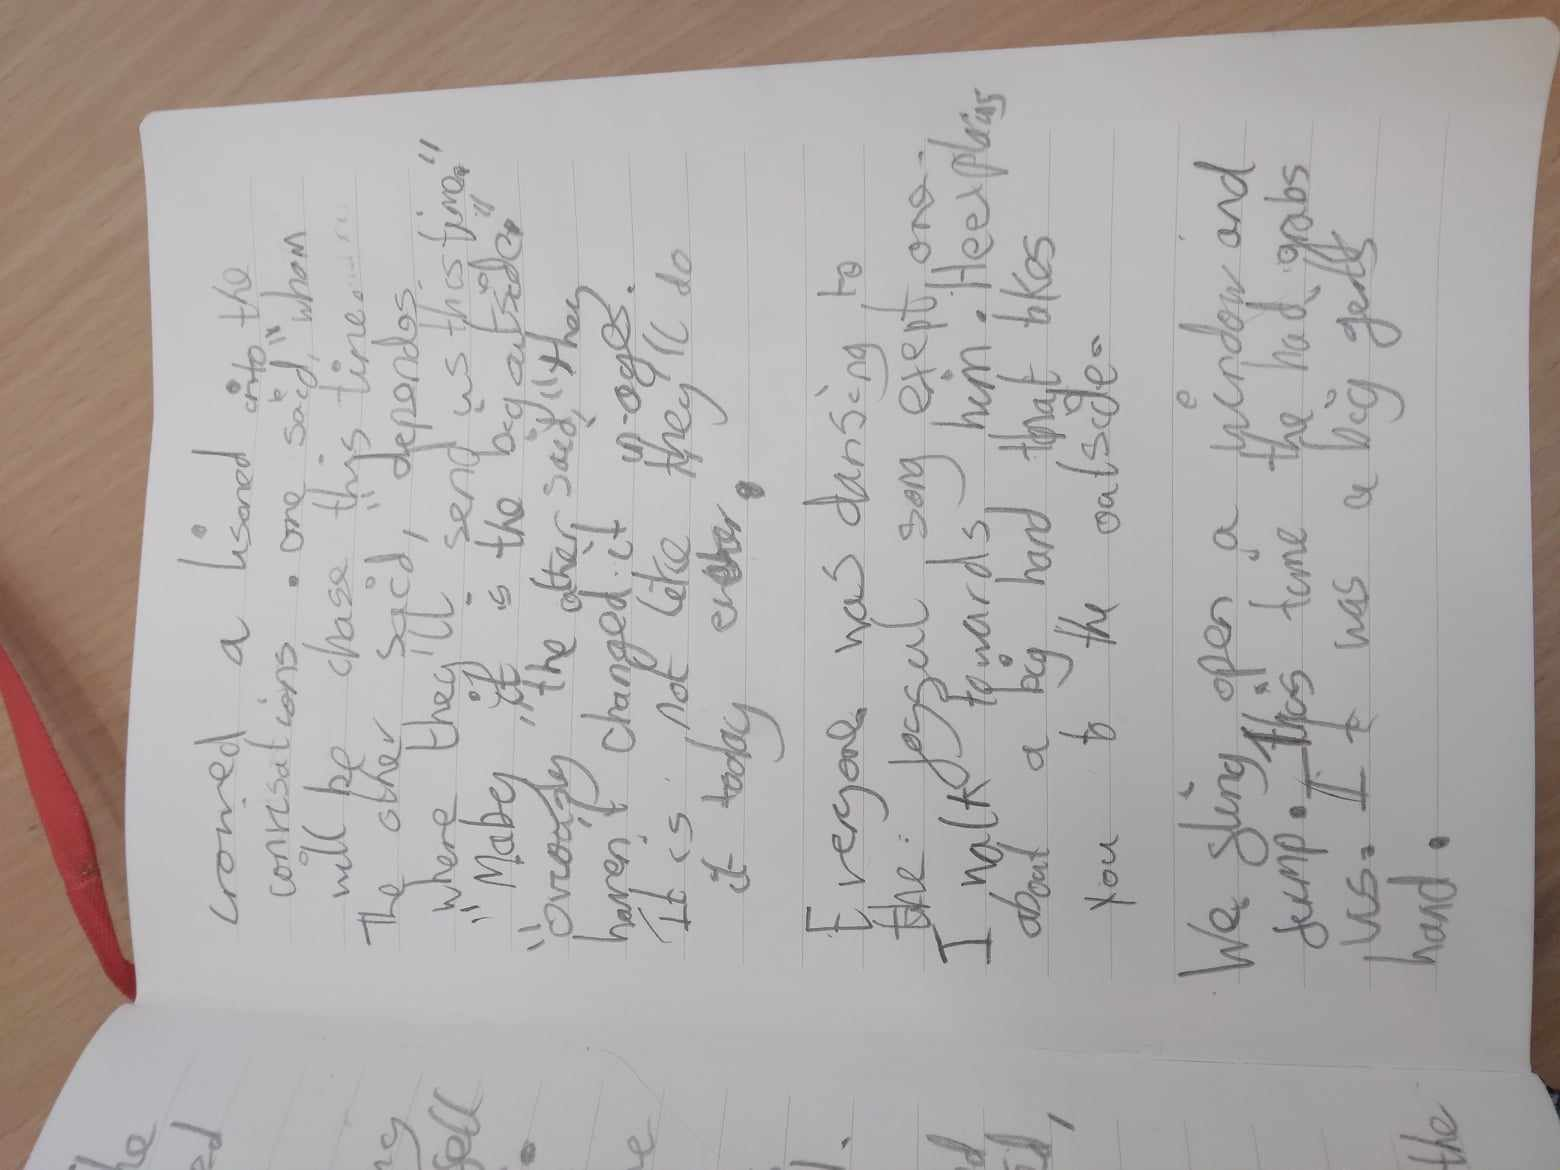 cromed a lisond into the
convisations. one said," whom
will be chase this time
The other said, "depends
where they'll send us this time."
"Mabey it is the big outside."
"Ovriody" the other said "they
haven't changed it in ages.
It is not like they'll do
it today ever.
Everyone was dansing to
the joyful song exept one.
I walk towards him. Heexplains
about a big hand that tkes
you to the outside.
We sling open a window and
jump. This time the hand grabs
us. It was a big gentt
hand.
he
ed
ng
self
e
the